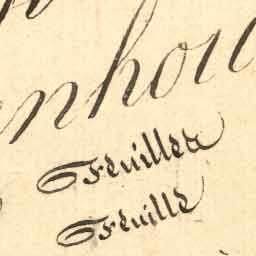 nhou
Feuillea
Feuille